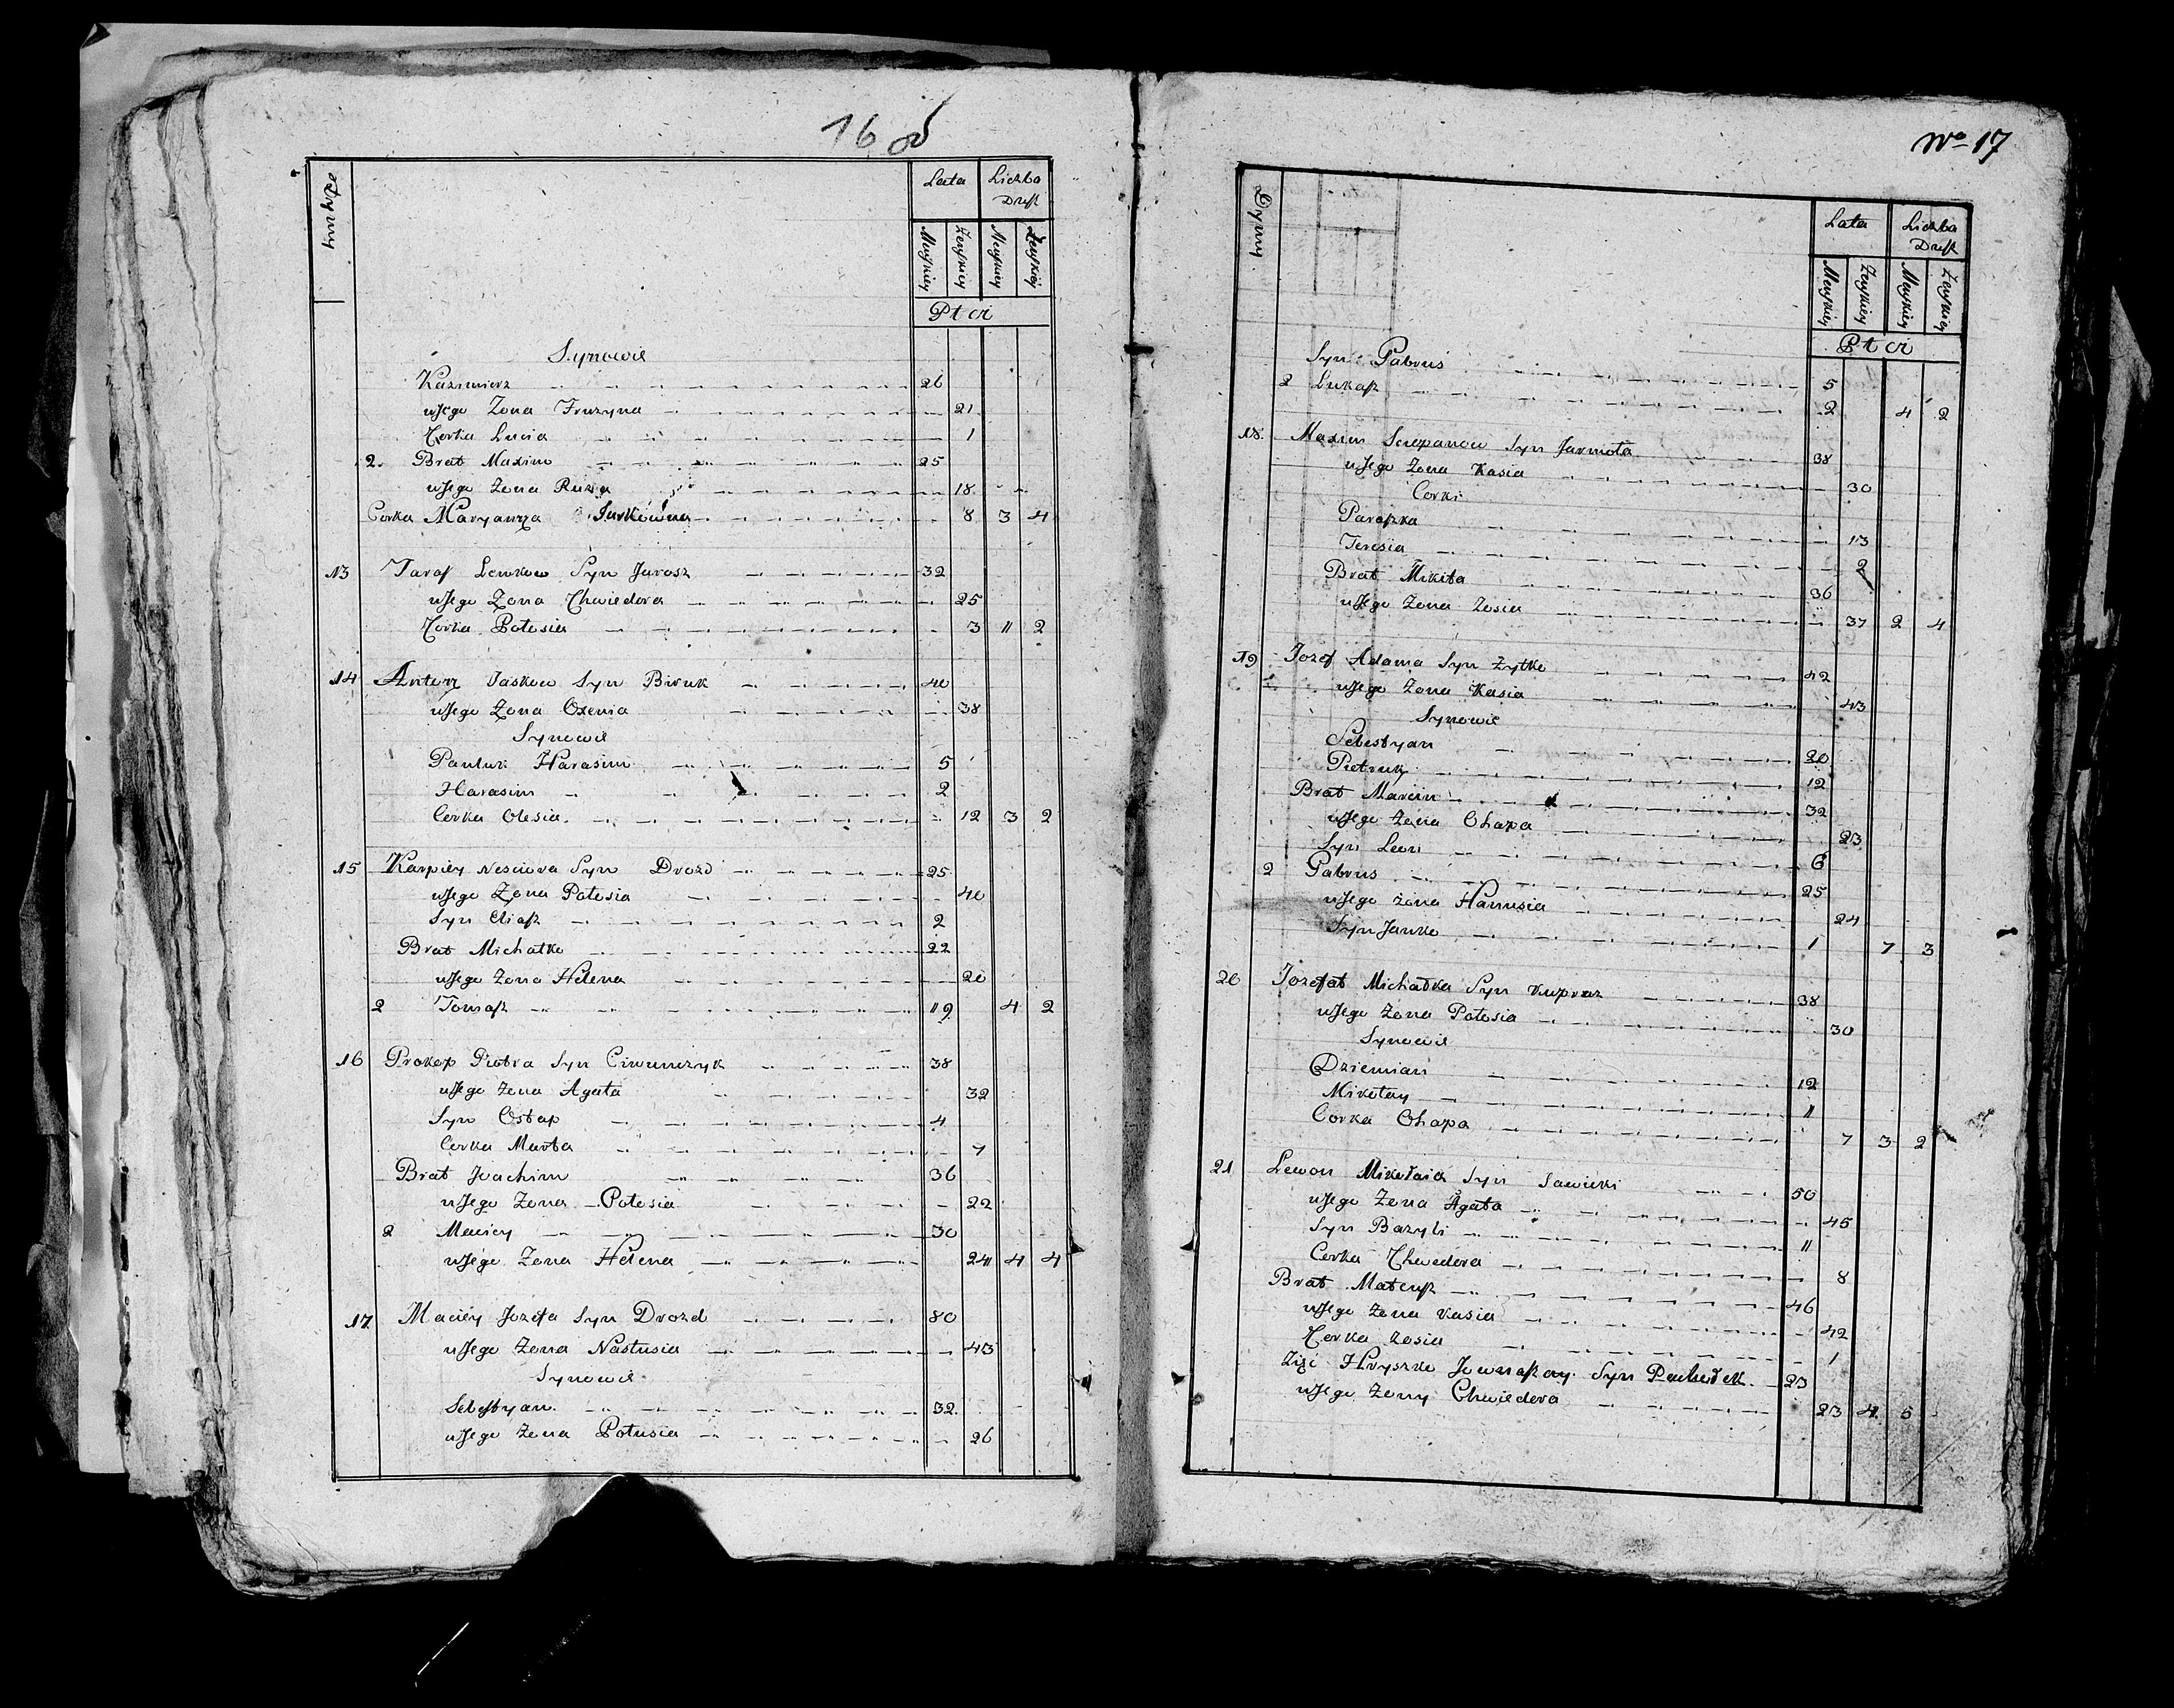 16
Dymy
Lata Liczba Dusz
Męzkiey Zenskiey Męzkiey Zenskiey
Płci
Synowie
Kazimierz 26
u Jego Zona Fruzyna 21
Corka Lucia 1
2. Brat Maxim 25
u Jego Zona Ruza 18
Corka Maryanna Jurkowna 8 3 4
13 Taras Lewkow Syn Jarosz 32
u Jego Zona Chwiedora 25
Corka Potosia 3 11 2
14 Anton Jaskow Syn Biruk 40
u Jego Zona Oxenia 38
Synowie
Pauluk Harasim 5
Harasim 2
Corka Olesia 12 3 2
15 Karpiey Nesciora Syn Drozd 25
u Jego Zona Potosia 40
Syn Eliasz 2
Brat Michałko 22
u Jego Zona Helena 20
2 Tomasz 119 4 2
16 Prokop Piotra Syn Ciwunczyk 38
u Jego Zona Agata 32
Syn Ostap 4
Corka Marta 7
Brat Joachim 36
u Jego Zona Potosia 22
2 Maciey 30
u Jego Zona Helena 24 4 4
17 Maciey Jozefa Syn Drozd 80
u Jego Zona Nastusia 43
Synowie
Sebestyan 32
u Jego Zona Potusia 26
No 17
Dymy
Lata Liczba Dusz
Męzkiey Zenskiey Męzkiey Zenskiey
Płci
Syn Gabrus 5
2 Łukasz 2 4 2
18. Maxim Sciepanow Syn Jarmoła 38
u Jego Zona Kasia 30
Corki
Paraszka 13
Teresia 2
Brat Mikita 36
u Jego Zona Zosia 37 2 4
19 Jozef Adama Syn Zytko 42
u Jego Zona Kasia 43
Synowie
Sebestyan 20
Pietruk 12
Brat Marcin 32
u Jego Zona Ohapa 23
Syn Leon 6
2 Gabrus 25
u Jego Zona Hanusia 24
Syn Janko 1 7 3
20 Jozefat Michałka Syn Kuprasz 38
u Jego Zona Potosia 30
Synowie
Dziemian 12
Mikołay 11
Corka Ohapa 7 3 2
21 Lewon Mikołaia Syn Sawicki 50
u Jego Zona Agata 45
Syn Bazyli 11
Corka Chwedora 8
Brat Mateusz 46
u Jego Zona Kasia 42
Corka Zosia 1
Zięć Hryszko Syn 23
u Jego Zony Chwiedora 23 4 5